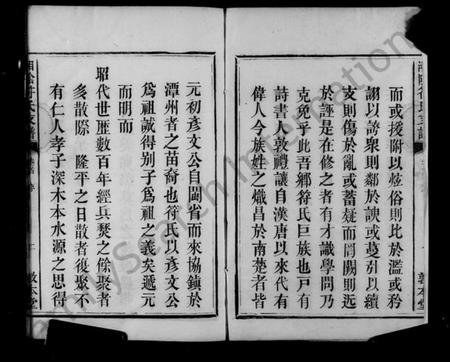 而或援附以炫俗則比於濫或矜
詡以誇衆則鄰於諛或蔓引以續
支則傷於亂或蓄疑而闕闕則近
於誣是在修之者有才識學問乃
克免乎此吾鄉符氏巨族也戸有
詩書人敦禮讓自漢唐以來代有
偉人今族姓之熾昌於南楚者皆
元初彥文公自閩省而來協鎮於
潭州者之苗裔也符氏以彥文公
為祖誠得別子為祖之義矣遞元
而明而
昭代世歷數百年經兵燹之餘聚者
多散際 隆平之日散者復聚不
有仁人孝子深木本水源之思得
湘陰符氏支譜
敦本堂
敦本堂
FamilySearch International